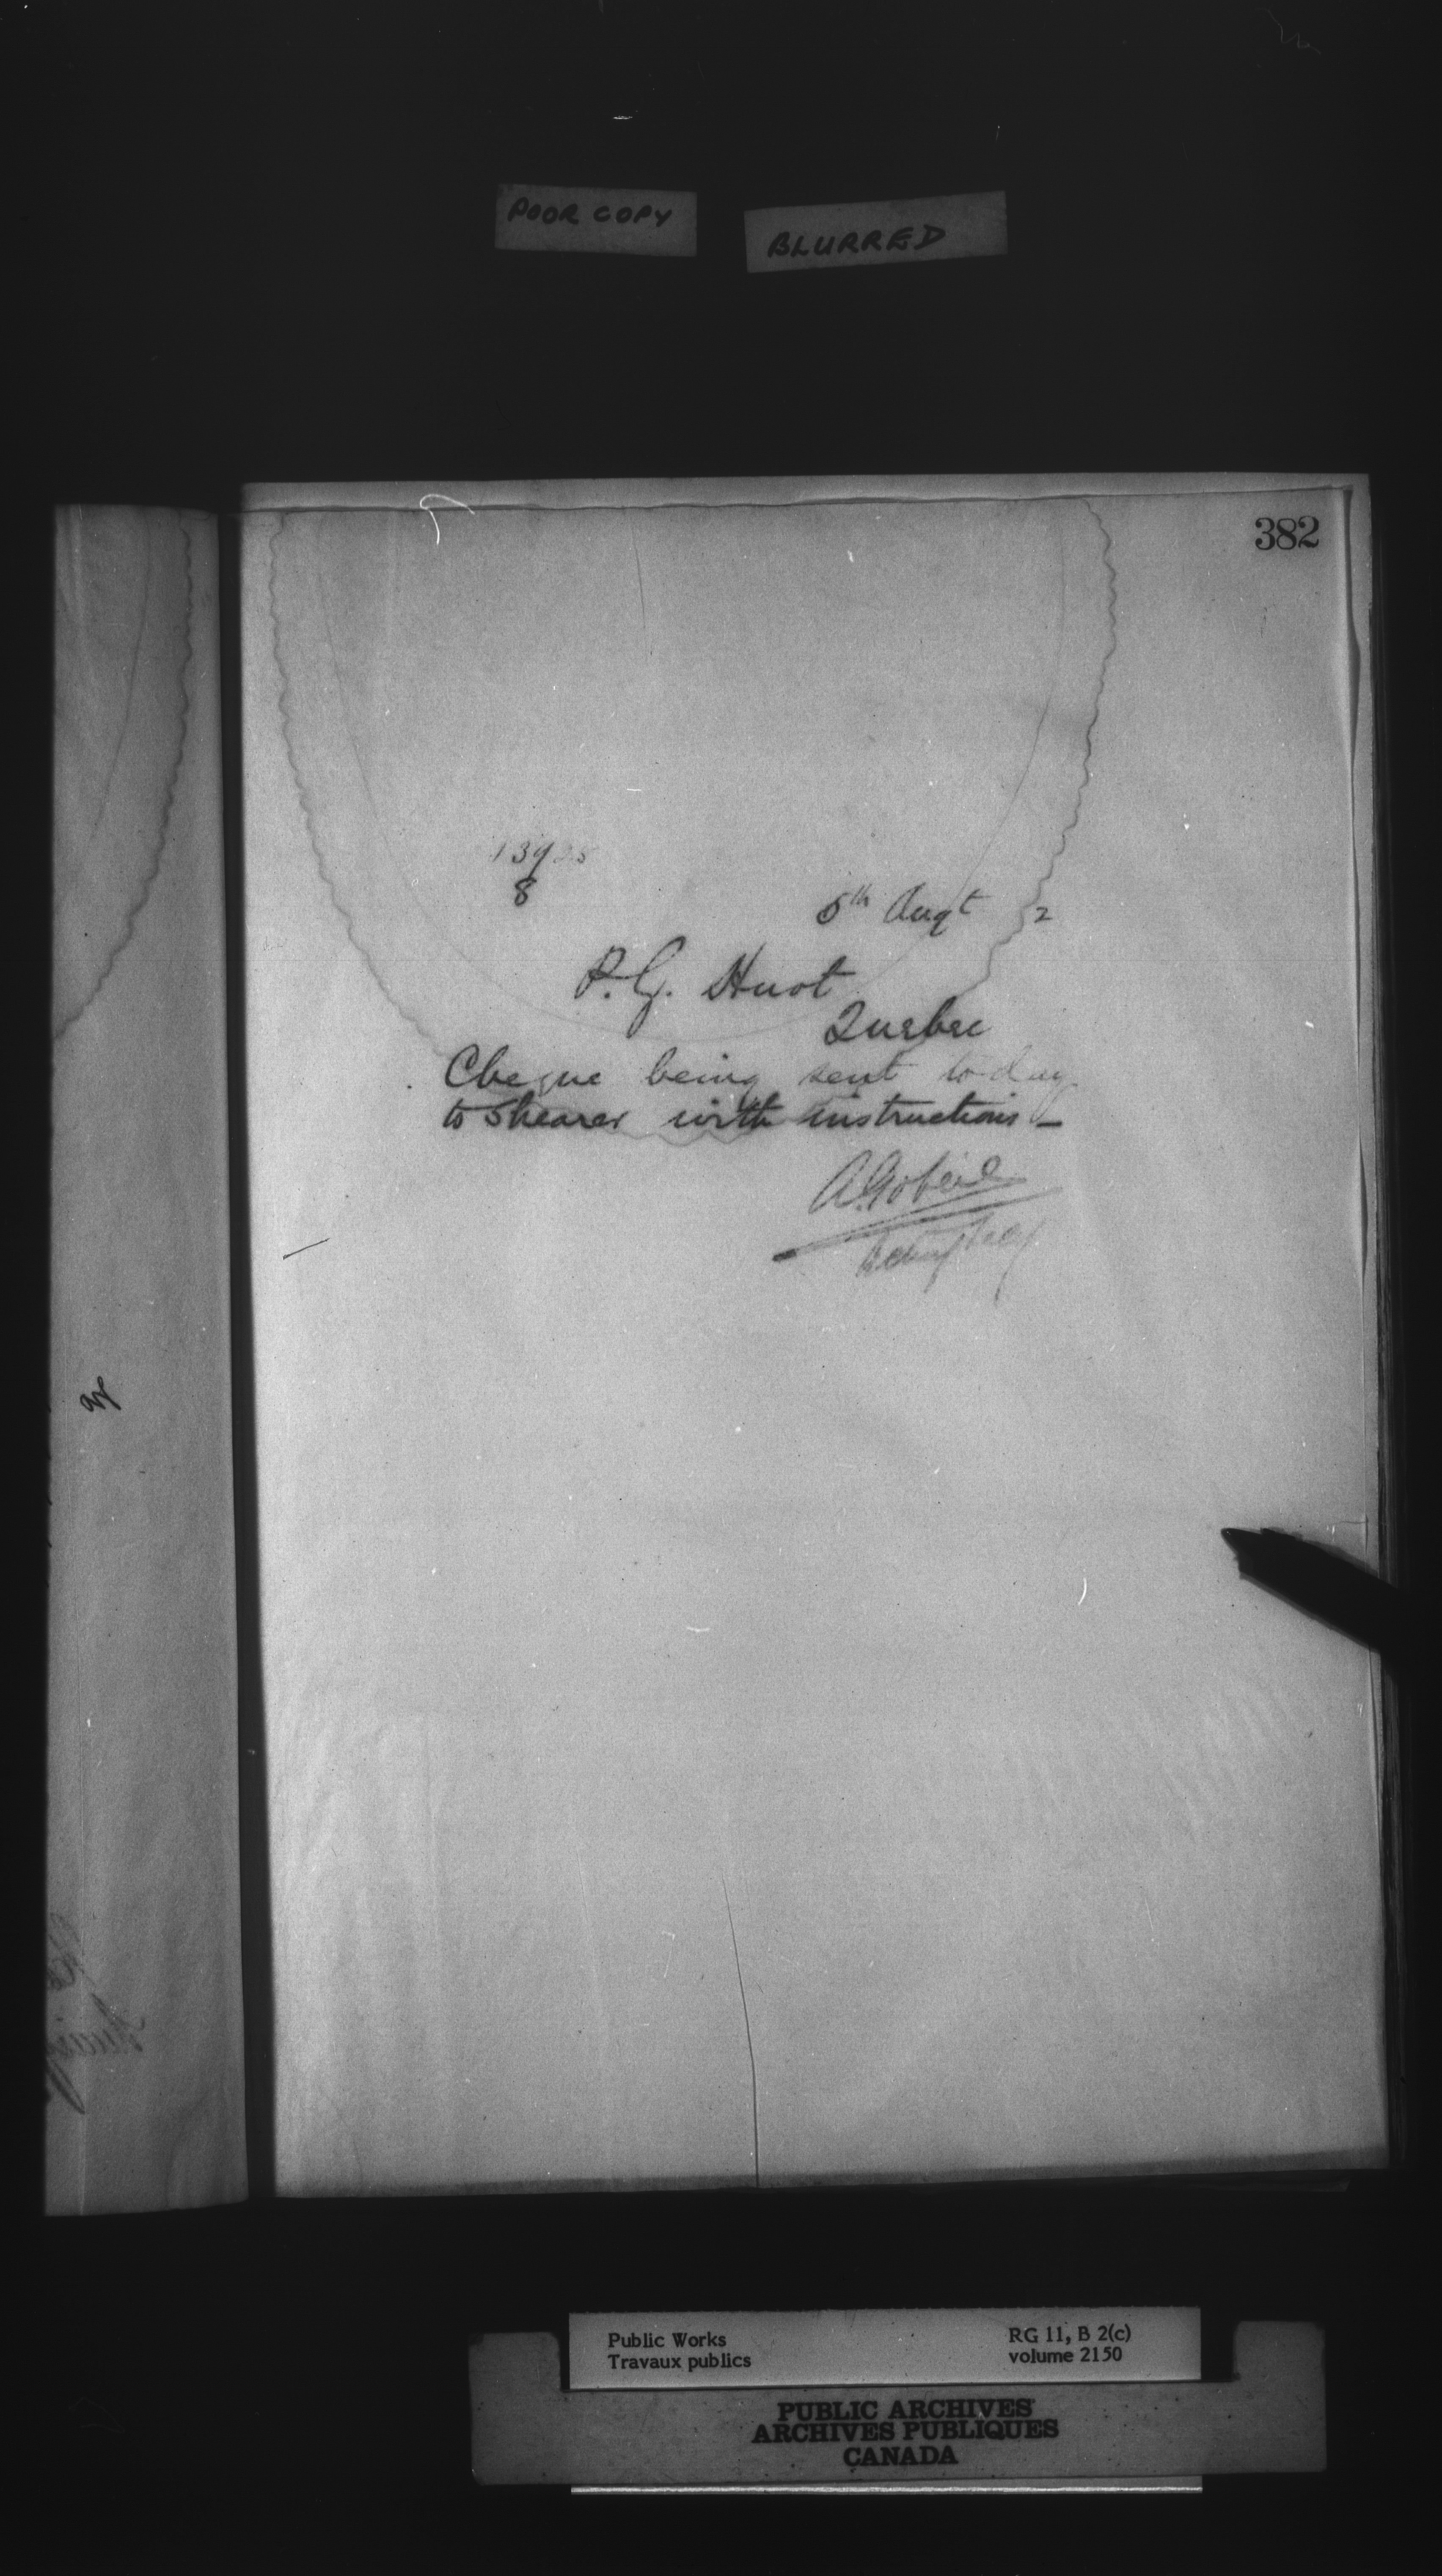 POOR COPY
BLURRED
382
8
5th Augt 2
P. G. Huot
Quebec
Cheque being sent to-day
to Shearer with instructions –
A. Gobeil
Public Works
Travaux publics
RG 11, B 2(c)
volume 2150
PUBLIC ARCHIVES
ARCHIVES PUBLIQUES
CANADA